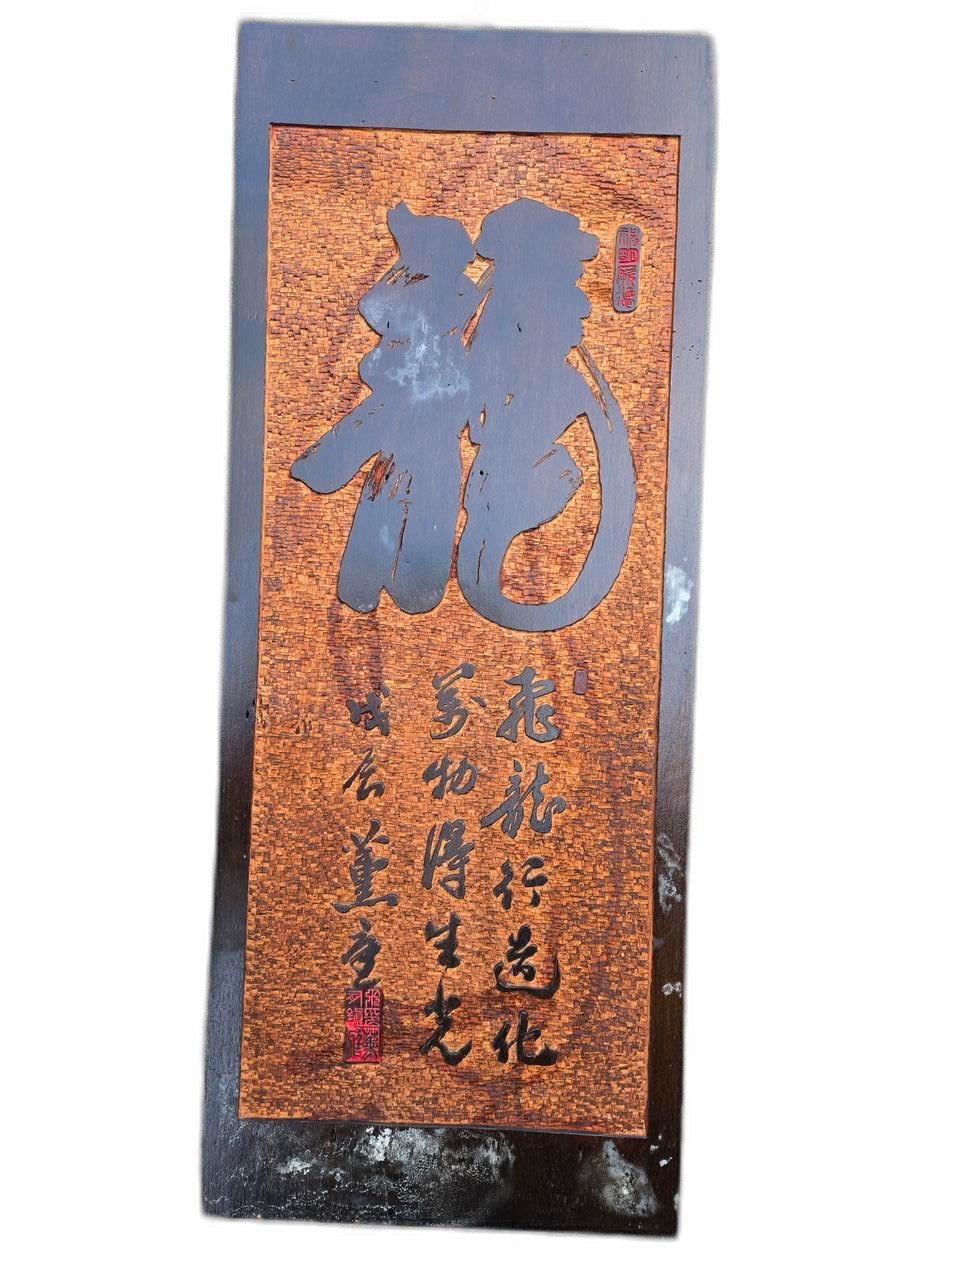 龍
飛龍行造化
萬物得生光
戊辰薰主